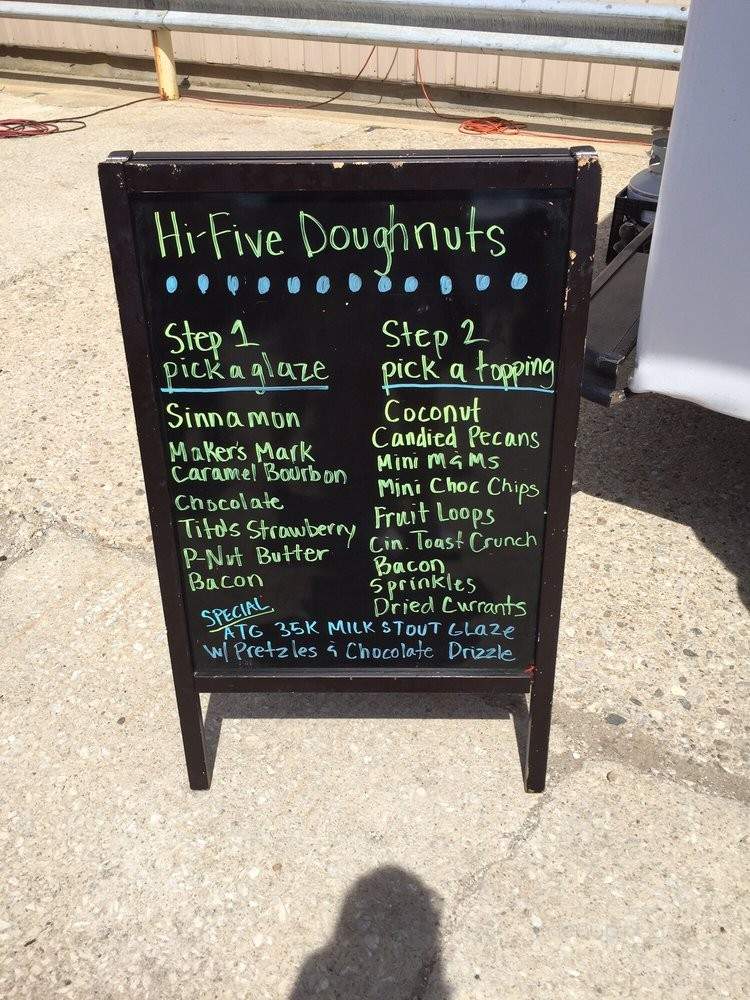 Hi-Five Doughnuts
Step 1
pick a glaze
Sinnamon
Maker's Mark
Caramel Bourbon
Chocolate
Tito's Strawberry
P-Nut Butter
Bacon
Step 2
pick a topping
Coconut
Candied Pecans
Mini M&Ms
Mini Choc Chips
Fruit Loops
Cin. Toast Crunch
Bacon
Sprinkles
Dried Currants
SPECIAL
ATG 35K MILK STOUT GLaze
W/ Pretzles & Chocolate Drizzle